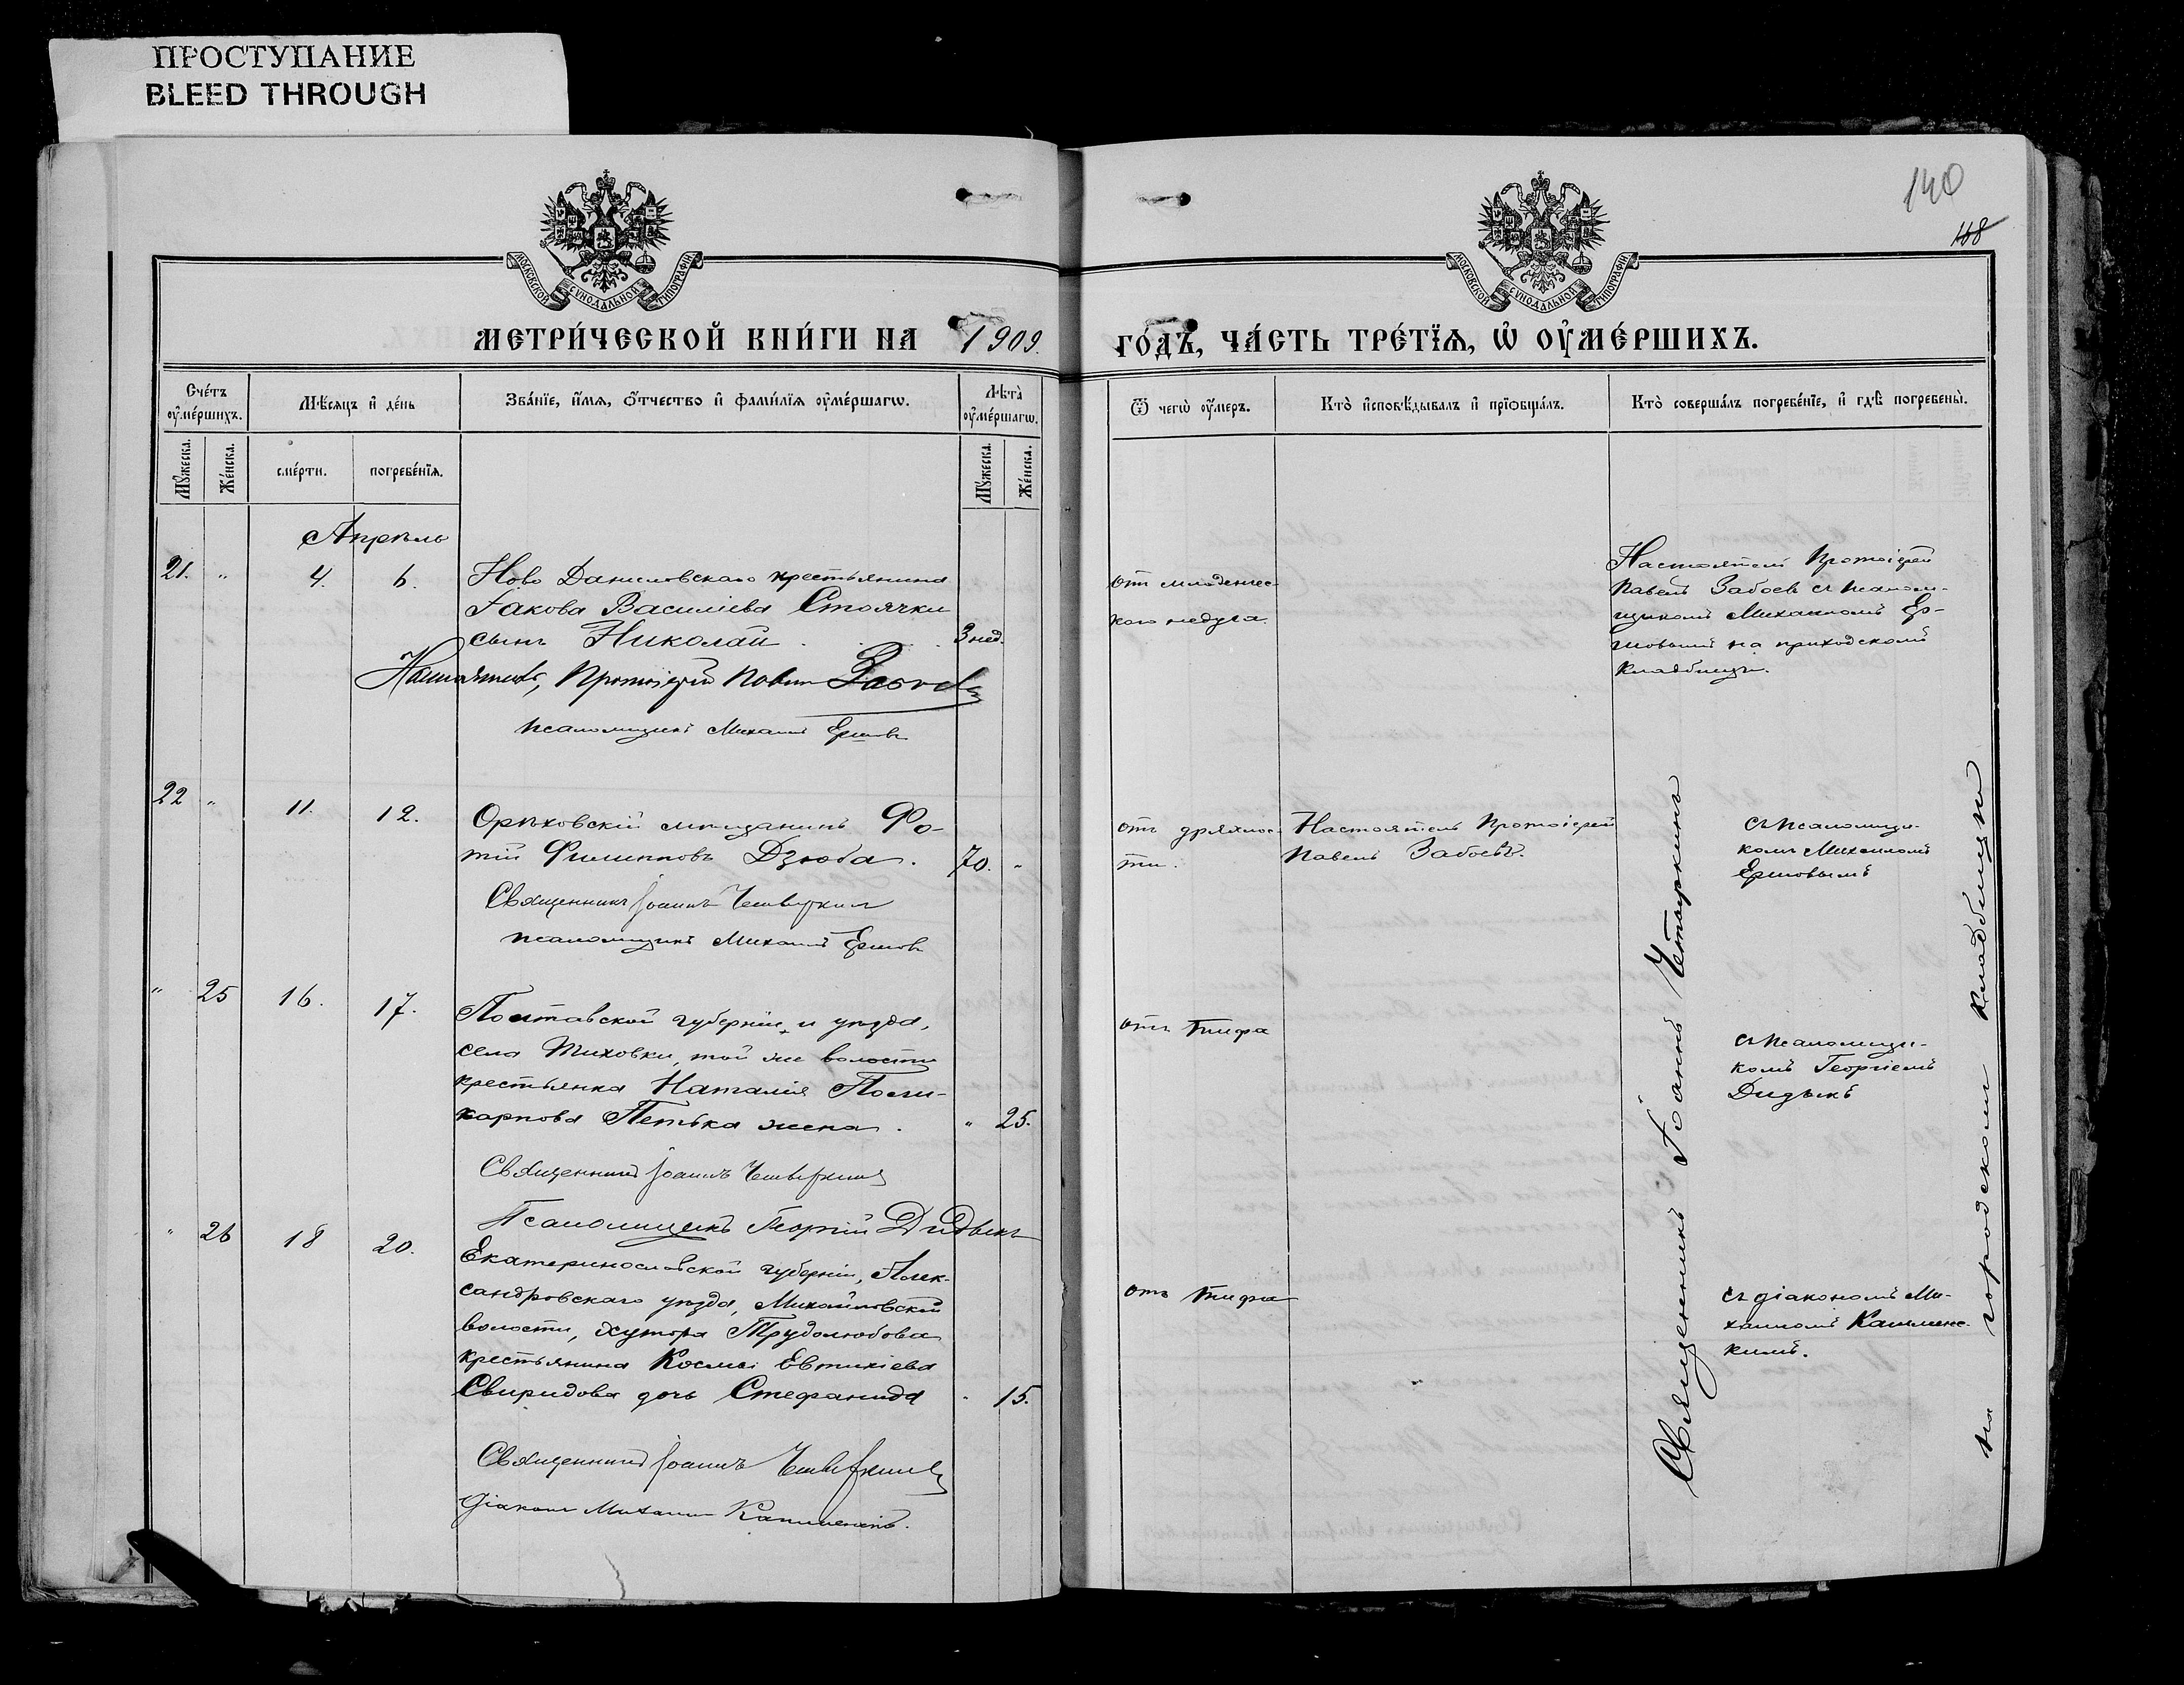 ПРОСТУПАНИЕ
BLEED THROUGH
140
168
МОСКОВСКОЙ СѴНОДАЛЬНОЙ ТИПОГРАФІИ
МОСКОВСКОЙ СѴНОДАЛЬНОЙ ТИПОГРАФІИ
МЕТРИ́ЧЕСКОЙ КНИ́ГИ НА 1909. ГО́ДЪ, ЧА́СТЬ ТРЕ́ТІѦ, Ѡ҆ ОУ҆МЕ́РШИХЪ.
Сче́тъ оу҆ме́ршихъ.
Мѣ́сѧцъ и҆ де́нь
Зва́нїе, и҆́мѧ, ѻ҆́тчество и҆ фами́лїѧ оу҆ме́ршагѡ.
Лѣ́та оу҆ме́ршагѡ.
Ѿ чегѡ̀ оу҆́меръ.
Кто̀ и҆сповѣ́дывалъ и҆ прїѡбща́лъ.
Кто̀ соверша́лъ погребе́нїе, и҆ гдѣ̀ погребены̀.
Мꙋ́жеска.
Же́нска.
сме́рти.
погребе́нїѧ.
Мꙋ́жеска.
Же́нска.
Апрѣль
21. " 4. 6.
Ново Даниловскаго крестьянина
Іакова Василіева Стоячки
сынъ Николай . . 3 нед.
Настоятель, Протоіерей Павелъ Забоевъ
псаломщикъ Михаилъ Ершовъ
от младенчес-
каго недуга.
Настоятель Протоіерей
Павелъ Забоевъ съ псалом-
щикомъ Михаиломъ Ер-
шовымъ на приходскомъ
кладбищѣ.
22 " 11. 12.
Орѣховскій мѣщанинъ Фо-
тій Филипповъ Дзюба. 70. "
Священникъ Іоаннъ Четыркинъ
псаломщикъ Михаилъ Ершовъ
отъ дряхлос-
ти.
Настоятель Протоіерей
Павелъ Забоевъ.
съ псаломщи-
комъ Михаиломъ
Ершовымъ
" 25 16. 17.
Полтавской губерніи, и уѣзда,
села Тиховки, той же волости
крестьянка Наталія Поли-
карпова Петька жена . " 25.
Священникъ Іоаннъ Четыркинъ
Псаломщикъ Георгій Дидыкъ
отъ тифа
съ псаломщи-
комъ Георгіемъ
Дидыкъ
" 26 18 20.
Екатеринославской губерніи, Алек-
сандровскаго уѣзда, Михайловской
волости, хутора Трудолюбова
крестьянина Космы Евтихіева
Свиридова дочь Стефанида " 15.
Священникъ Іоаннъ Четыркинъ
Діаконъ Михаилъ
отъ тифа
съ діакономъ Ми-
хаиломъ
Священникъ Іоаннъ Четыркинъ
на городскомъ кладбищѣ